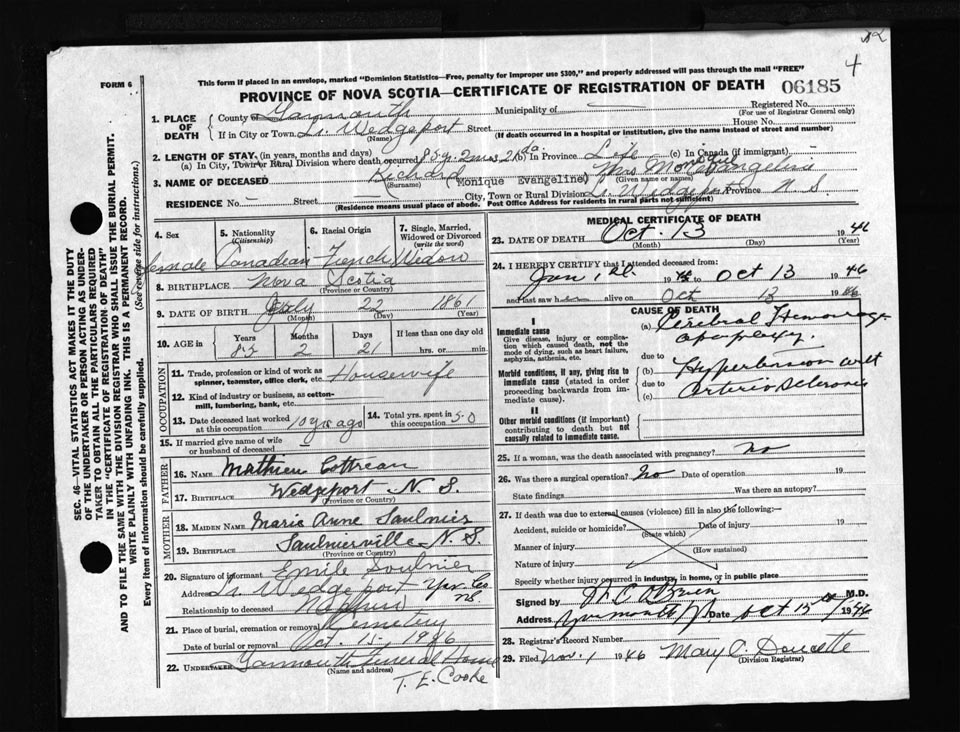 4
FORM 6
This form if placed in an envelope, marked "Dominion Statistics—Free, penalty for improper use $300," and properly addressed will pass through the mail "FREE"
PROVINCE OF NOVA SCOTIA—CERTIFICATE OF REGISTRATION OF DEATH 06185
1. PLACE OF DEATH County of Yarmouth Municipality of — Registered No.
(For use of Registrar General only)
If in City or Town L. Wedgeport Street House No.
(Name) (If death occurred in a hospital or institution, give the name instead of street and number)
2. LENGTH OF STAY. (in years, months and days)
(a) In City, Town or Rural Division where death occurred 85y. 2mos 21 da. In Province Life (c) In Canada (if immigrant)
3. NAME OF DECEASED Richard (Monique Evangeline) Mrs
(Surname) (Given name or names)
RESIDENCE No — Street City, Town or Rural Division L. Wedgeport Province N S.
(Residence means usual place of abode. Post Office Address for residents in rural parts not sufficient)
4. Sex 5. Nationality (Citizenship) 6. Racial Origin 7. Single, Married, Widowed or Divorced (write the word)
female Canadian French Widow
8. BIRTHPLACE Nova Scotia
(Province or Country)
9. DATE OF BIRTH July 22 1861
(Month) (Day) (Year)
10. AGE in Years Months Days If less than one day old
85 2 21 hrs. or min.
OCCUPATION
11. Trade, profession or kind of work as spinner, teamster, office clerk, etc. Housewife
12. Kind of industry or business, as cotton-mill, lumbering, bank, etc.
13. Date deceased last worked at this occupation 10 yrs ago 14. Total yrs. spent in this occupation 50
15. If married give name of wife or husband of deceased
FATHER
16. NAME Mathieu Cottreau
17. BIRTHPLACE Wedgeport N. S.
(Province or Country)
MOTHER
18. MAIDEN NAME Marie Anne Saulnier
19. BIRTHPLACE Saulnierville N. S.
(Province or Country)
20. Signature of informant Emile Soulnier
Address L. Wedgeport Yar. Co. NS.
Relationship to deceased
21. Place of burial, cremation or removal Cemetery
Date of burial or removal Oct. 1946
22. UNDERTAKER Yarmouth Funeral Home
(Name and address)
T. E. Cooke
MEDICAL CERTIFICATE OF DEATH
23. DATE OF DEATH Oct. 13 1946
(Month) (Day) (Year)
24. I HEREBY CERTIFY that I attended deceased from:
Jan 1 to Oct 13 1946
and last saw her alive on Oct 13 1946
CAUSE OF DEATH
I
Immediate cause
Give disease, injury or complication which caused death, not the mode of dying, such as heart failure, asphyxia, asthenia, etc.
(a) Cerebral Hemorrage
apoplexy.
due to
Morbid conditions, if any, giving rise to immediate cause (stated in order proceeding backwards from immediate cause).
(b) Hypertension with
due to
(c) Arterio Sclerosis
II
Other morbid conditions (if important) contributing to death but not causally related to immediate cause.
25. If a woman, was the death associated with pregnancy? no
26. Was there a surgical operation? No Date of operation 19
State findings Was there an autopsy?
27. If death was due to external causes (violence) fill in also the following:—
Accident, suicide or homicide? Date of injury 19
(State which)
Manner of injury
(How sustained)
Nature of injury
Specify whether injury occurred in industry, in home, or in public place
Signed by C O'Brien M.D.
Address Yarmouth Date Oct 15 1946
28. Registrar's Record Number
29. Filed Nov. 1 1946 Mary C. Doucette
(Division Registrar)
SEC. 46—VITAL STATISTICS ACT MAKES IT THE DUTY
OF THE UNDERTAKER OR PERSON ACTING AS UNDER-
TAKER TO OBTAIN ALL THE PARTICULARS REQUIRED
IN THE "CERTIFICATE OF REGISTRATION OF DEATH"
AND TO FILE THE SAME WITH THE DIVISION REGISTRAR WHO SHALL ISSUE THE BURIAL PERMIT.
WRITE PLAINLY WITH UNFADING INK. THIS IS A PERMANENT RECORD.
(See reverse side for instructions.)
Every item of information should be carefully supplied.